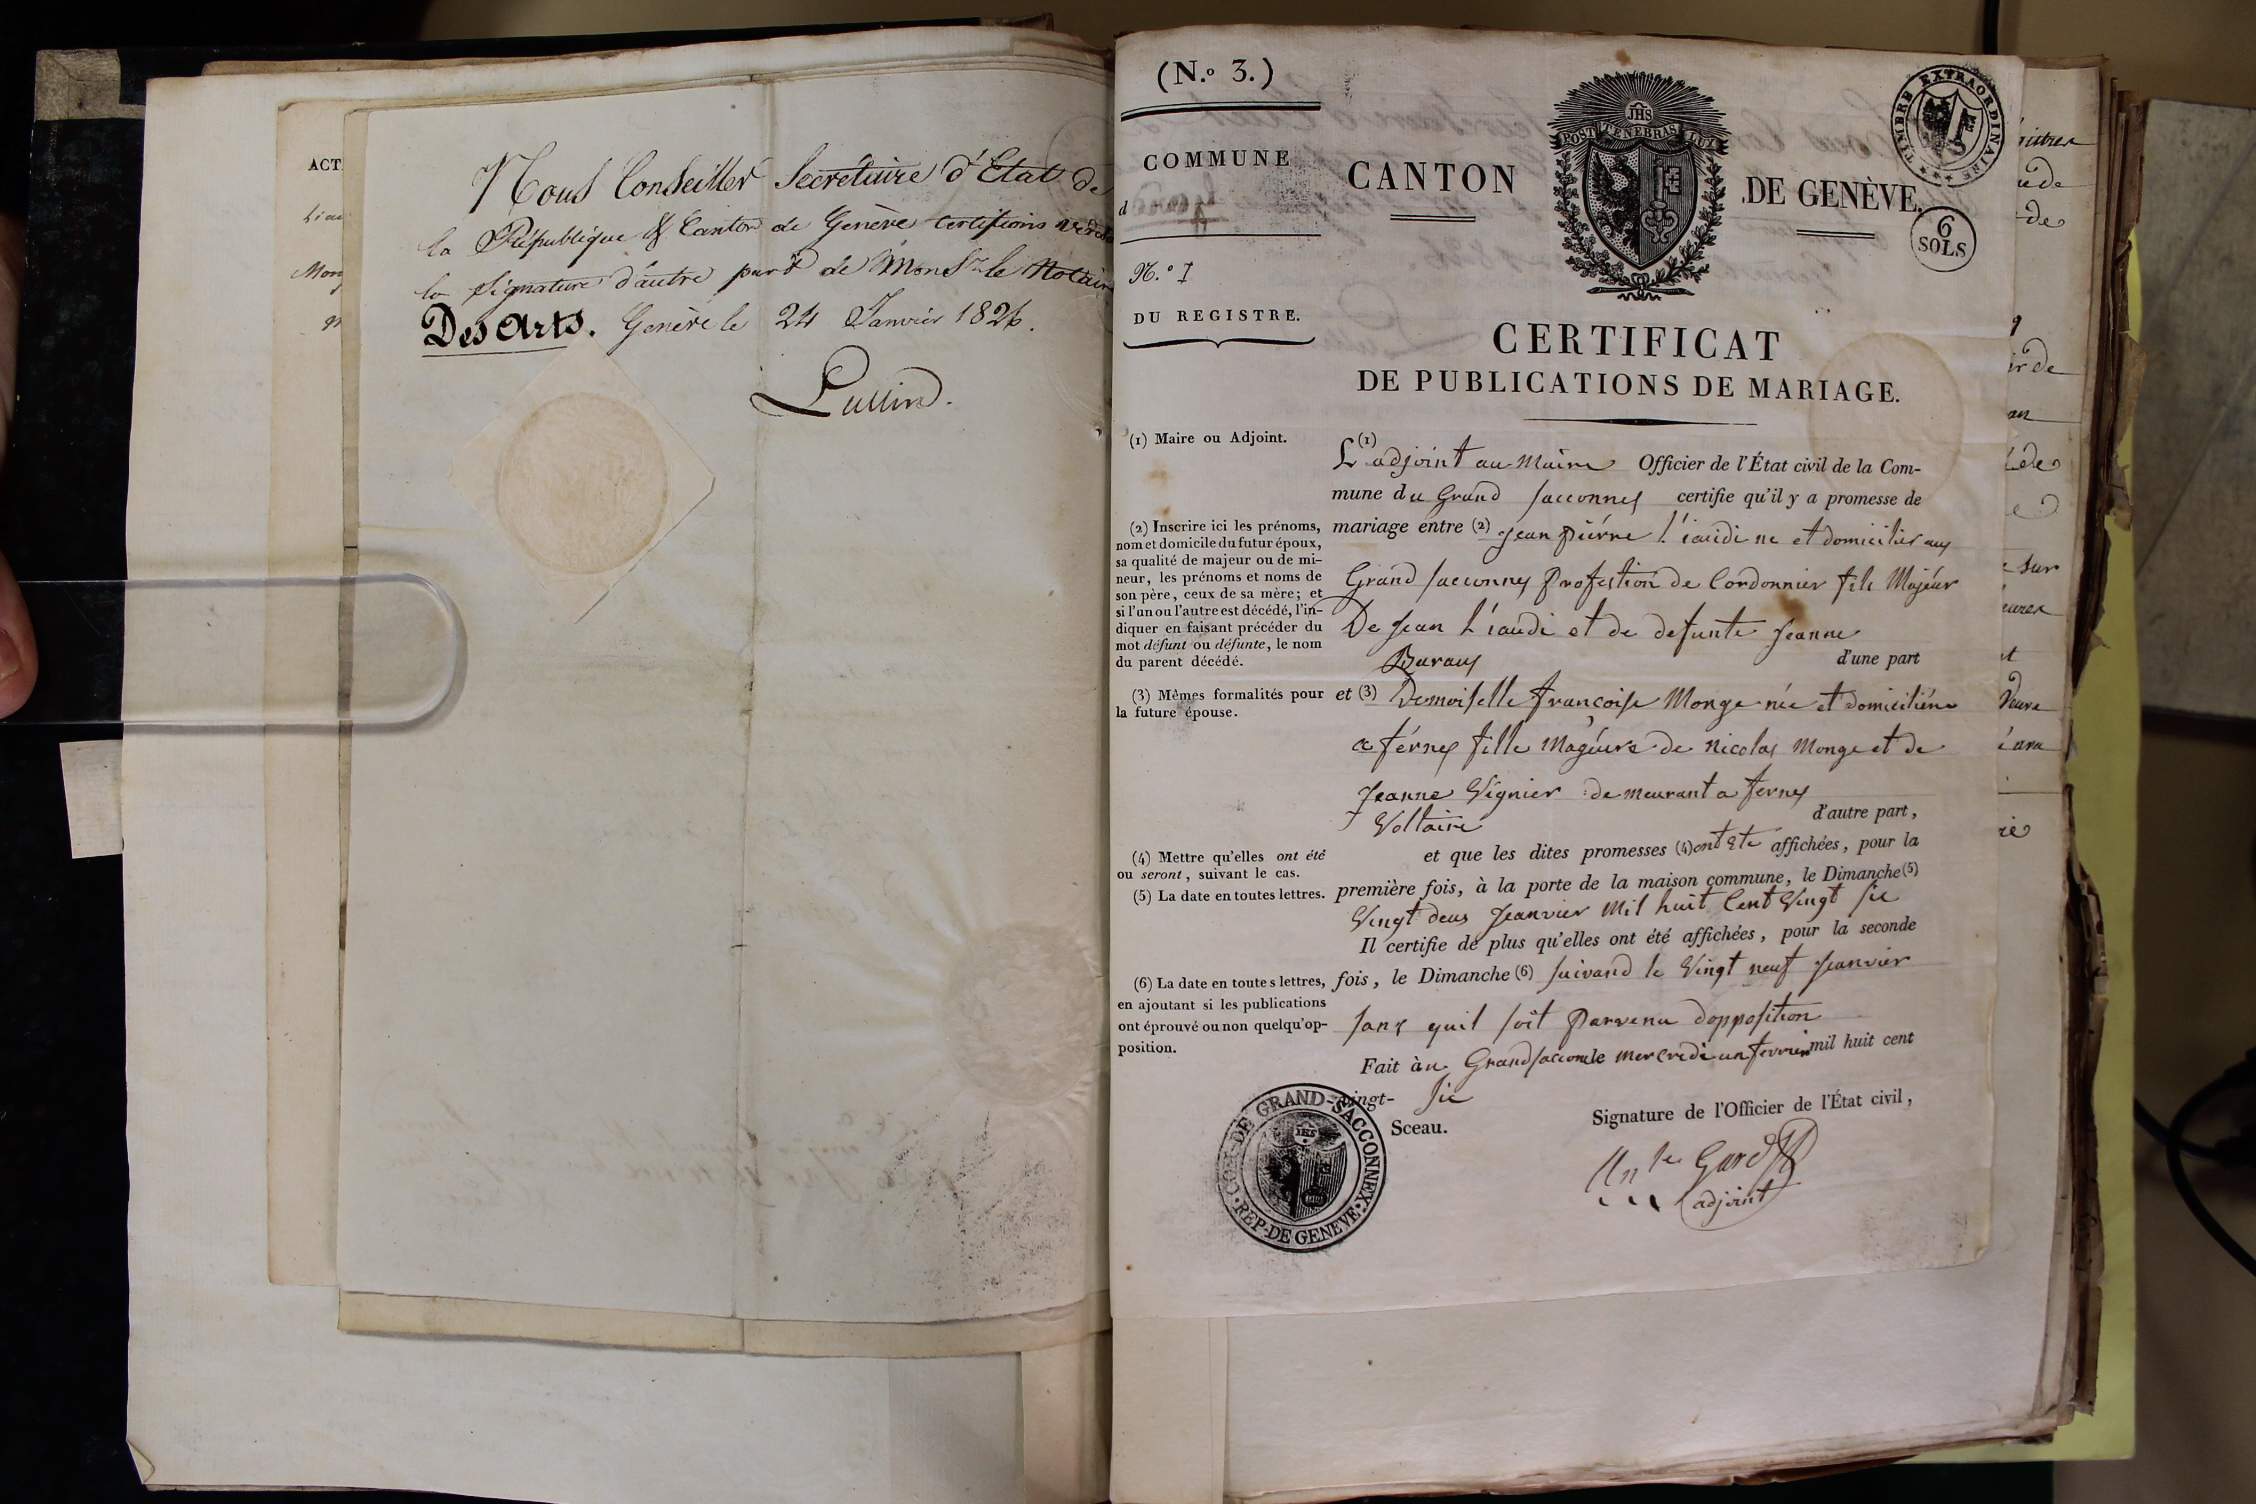 Nous Conseiller Secrétaire d'Etat de
la République & Canton de Genève certifions
la signature d'autre part de Monsr. le Notaire
Des Arts. Genève le 24 Janvier 1826.
Lullin.
ACT
(N.º 3.)
COMMUNE
d
N.º 1
DU REGISTRE.
CANTON
JHS
POST TENEBRAS LUX
DE GENÈVE.
TIMBRE EXTRAORDINAIRE
6
SOLS
CERTIFICAT
DE PUBLICATIONS DE MARIAGE.
(1) Maire ou Adjoint.
(2) Inscrire ici les prénoms,
nom et domicile du futur époux,
sa qualité de majeur ou de mi-
neur, les prénoms et noms de
son père, ceux de sa mère; et
si l'un ou l'autre est décédé, l'in-
diquer en faisant précéder du
mot défunt ou défunte, le nom
du parent décédé.
(3) Mêmes formalités pour
la future épouse.
(4) Mettre qu'elles ont été
ou seront, suivant le cas.
(5) La date en toutes lettres.
(6) La date en toutes lettres,
en ajoutant si les publications
ont éprouvé ou non quelqu'op-
position.
L'(1) adjoint au Maire Officier de l'État civil de la Com-
mune du Grand Sacconnex certifie qu'il y a promesse de
mariage entre (2) Jean piérre L'iaudi ne et domicilié aux
Grand Sacconnex profestion de Cordonnier fils Majéur
De Jean L'iaudi et de defunte Jeanne
d'une part
et (3) Demoiselle françoise Monge née et domiciliéne
a férney fille Magéure de Nicolas Monge et de
Jeanne Vignier demeurant a ferney
Voltaire d'autre part,
et que les dites promesses (4) ont Eté affichées, pour la
première fois, à la porte de la maison commune, le Dimanche (5)
Vingt deux Jeanvier Mil huit Cent Vingt Sic
Il certifie de plus qu'elles ont été affichées, pour la seconde
fois, le Dimanche (6) suivand le Vingt neuf Jeanvier
sans quil soit parvenu dopposition
Fait àu Grand Saccon le Mercredi un fevrier mil huit cent
vingt- Sic
Sceau.
COM-DE GRAND-SACCONNEX
REP-DE GENEVE
JHS
Signature de l'Officier de l'État civil,
adjoint